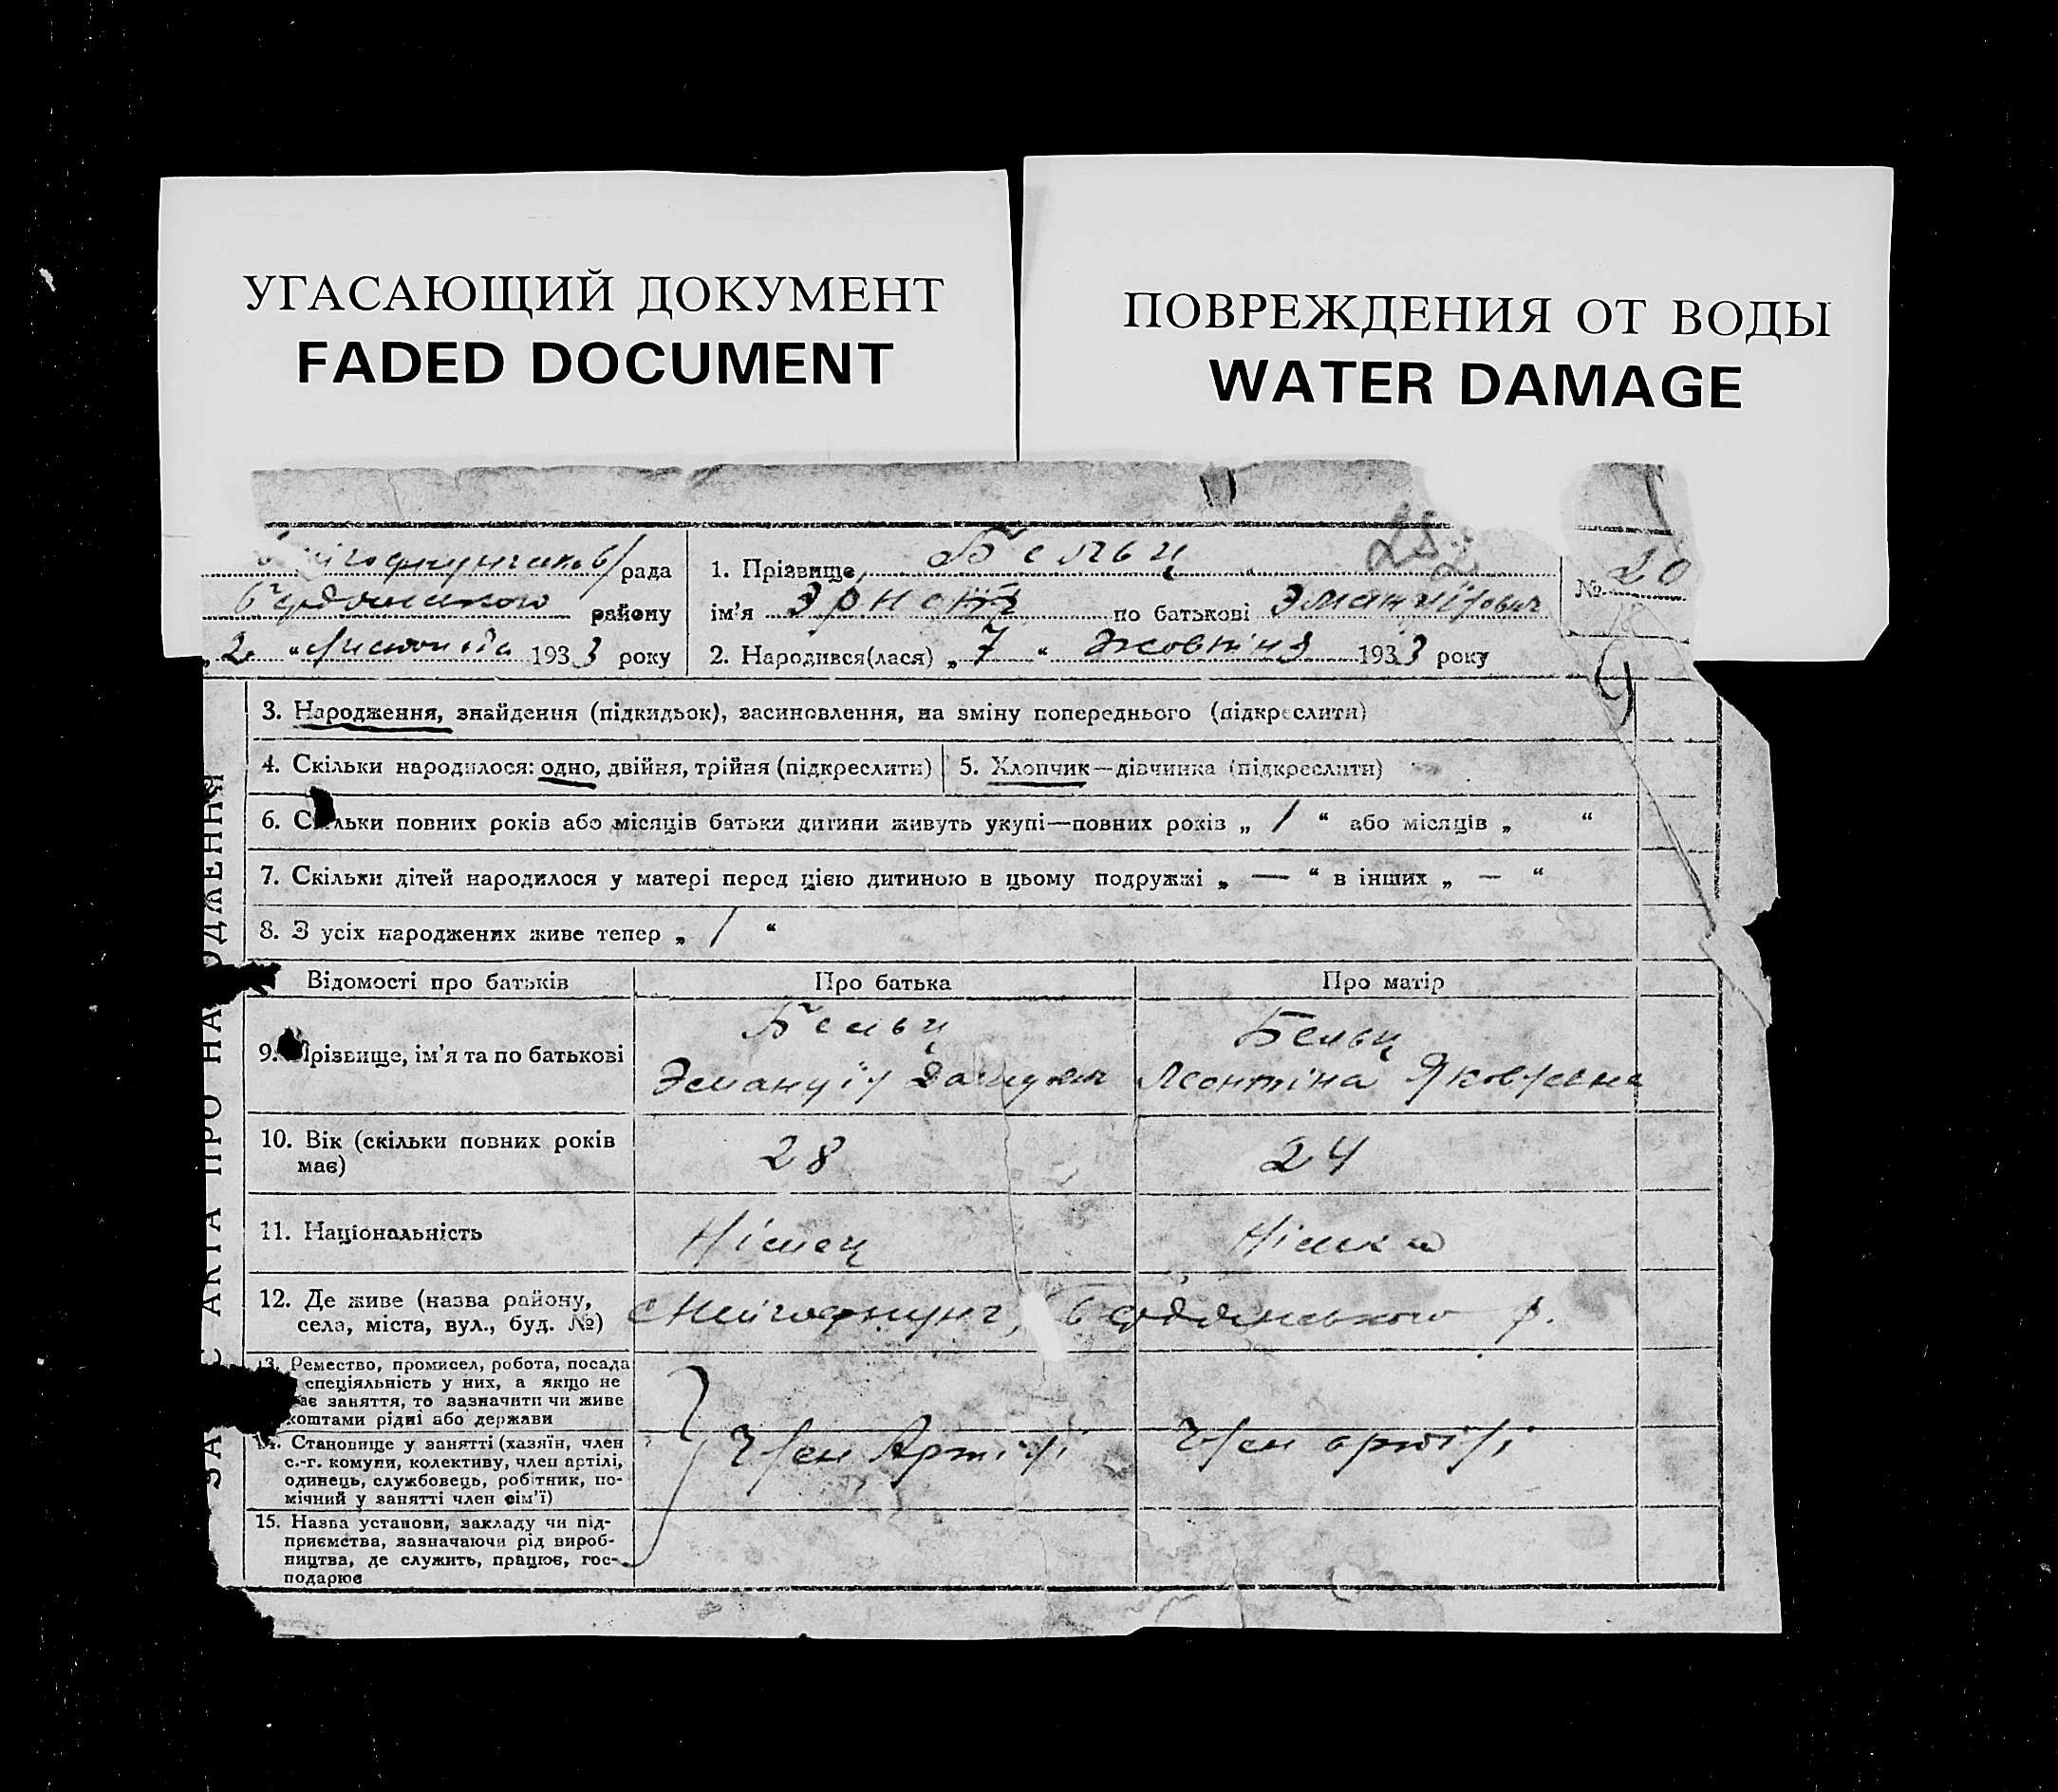 УГАСАЮЩИЙ ДОКУМЕНТ
FADED DOCUMENT
ПОВРЕЖДЕНИЯ ОТ ВОДЫ
WATER DAMAGE
рада
району
„ 2 “ Листопада 1933 року
1. Прізвище Бельц
ім’я Эрнст по батькові Эмануїлович
2. Народився(лася) „ 7 “ Жовтня 1933 року
№ 20
3. Народження, знайдення (підкидьок), засиновлення, на зміну попереднього (підкреслити)
4. Скільки народилося: одно, двійня, трійня (підкреслити)
5. Хлопчик—дівчинка (підкреслити)
6. Скільки повних років або місяців батьки дитини живуть укупі—повних років „ 1 “ або місяців „ “
7. Скільки дітей народилося у матері перед цією дитиною в цьому подружжі „ — “ в інших „ — “
8. З усіх народжених живе тепер „ 1 “
Відомості про батьків
Про батька
Про матір
9. Прізвище, ім’я та по батькові
Бельц
Эмануїл
Бельц
Леонтіна Яковлевна
10. Вік (скільки повних років
має)
28
24
11. Національність
Німец
Німка
12. Де живе (назва району,
села, міста, вул., буд. №)
р.
13. Ремество, промисел, робота, посада
спеціяльність у них, а якщо не
має заняття, то зазначити чи живе
коштами рідні або держави
14. Становище у занятті (хазяїн, член
с.-г. комуни, колективу, член артілі,
одинець, службовець, робітник, по-
мічний у занятті член сім’ї)
Член Артілі
Член артілі
15. Назва установи, закладу чи під-
приємства, зазначаючи рід вироб-
ництва, де служить, працює, гос-
подарює
АКТА ПРО НА ОДЖЕННЯ